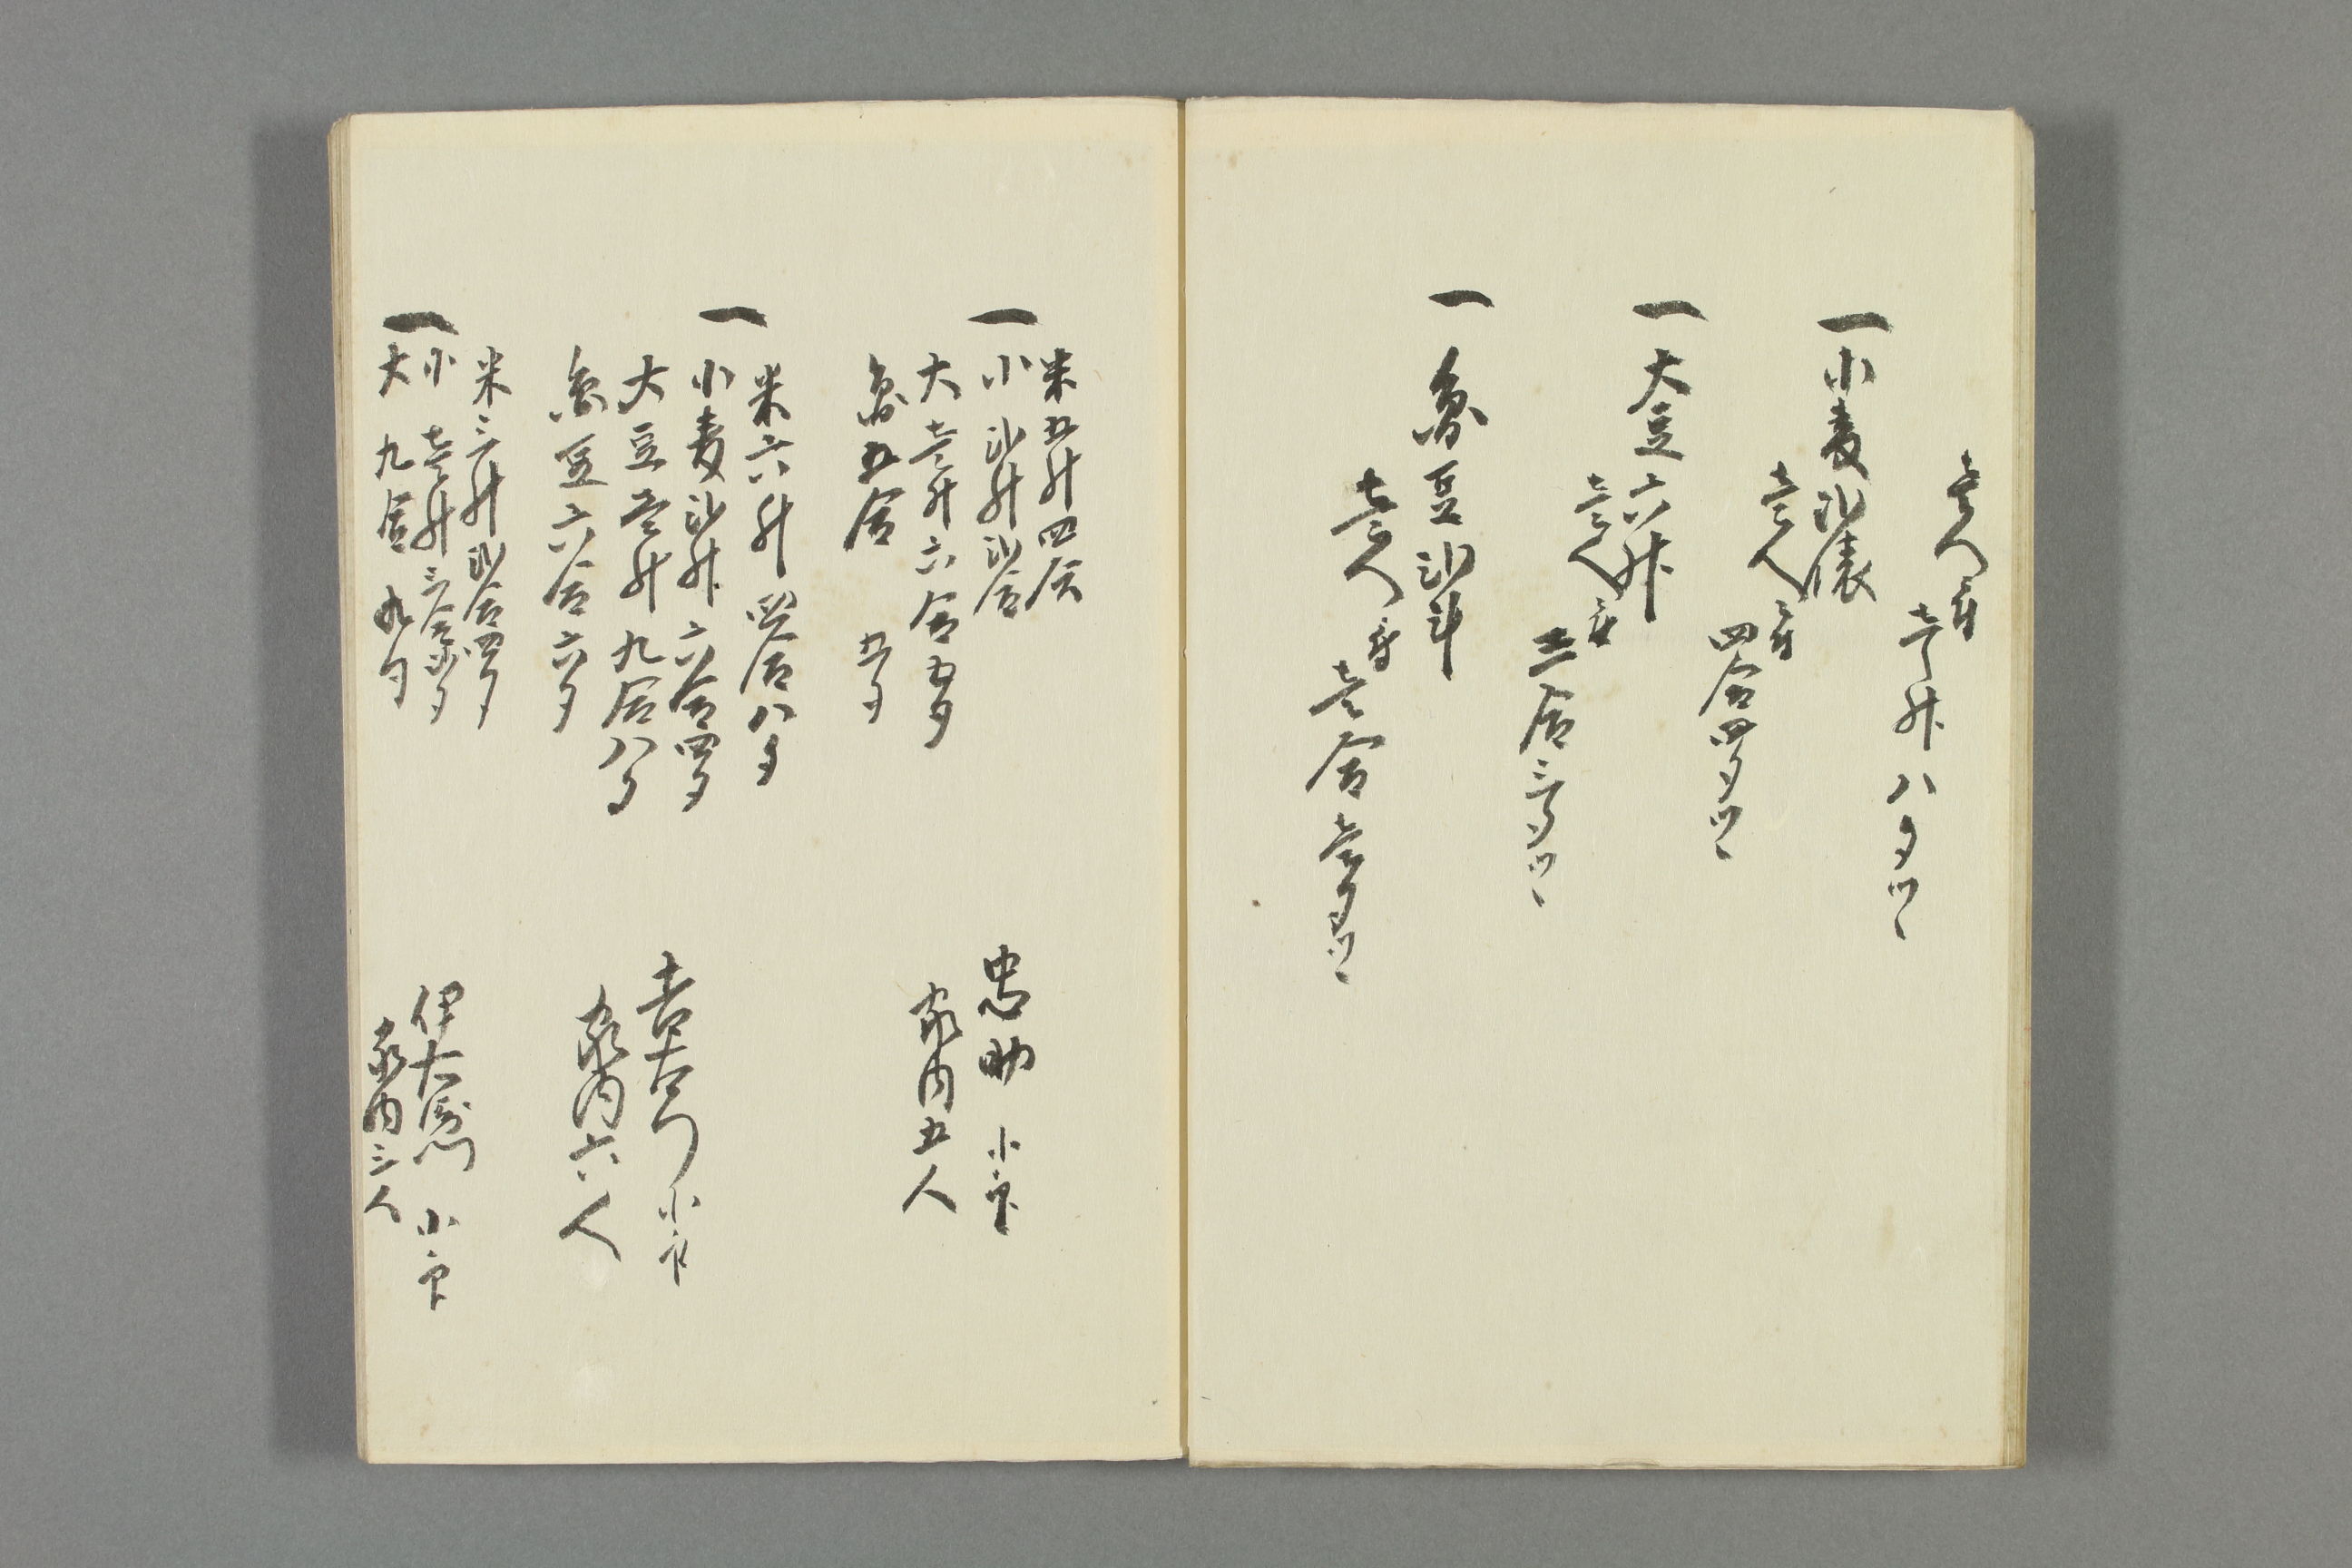 壱人ニ付
壱升八夕ツヽ
一小麦弐俵
壱人ニ付
四合四夕ツヽ
一大豆六斗
壱人ニ付
三合三夕ツヽ
一角豆弐斗
壱人ニ付
壱合壱夕ツヽ
米五升四合
一小弐升弐合
大壱升六合五夕
角五合五夕
忠助
家内五人
米六升四合八夕
一小麦弐升六合四夕
大豆壱升九合八夕
角豆六合六夕
吉右衛門
家内六人
米三升弐合四夕
一小壱升三合弐夕
大九合九夕
伊右衛門
家内三人